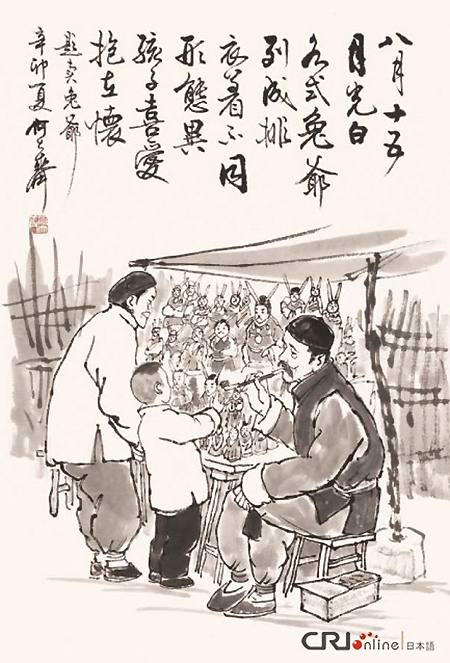 八月十五
月光白
各式兔爺
列成排
衣着不同
形態異
孩子喜愛
抱在懷
題卖兔爺
辛卯夏
CRIonline 日本語